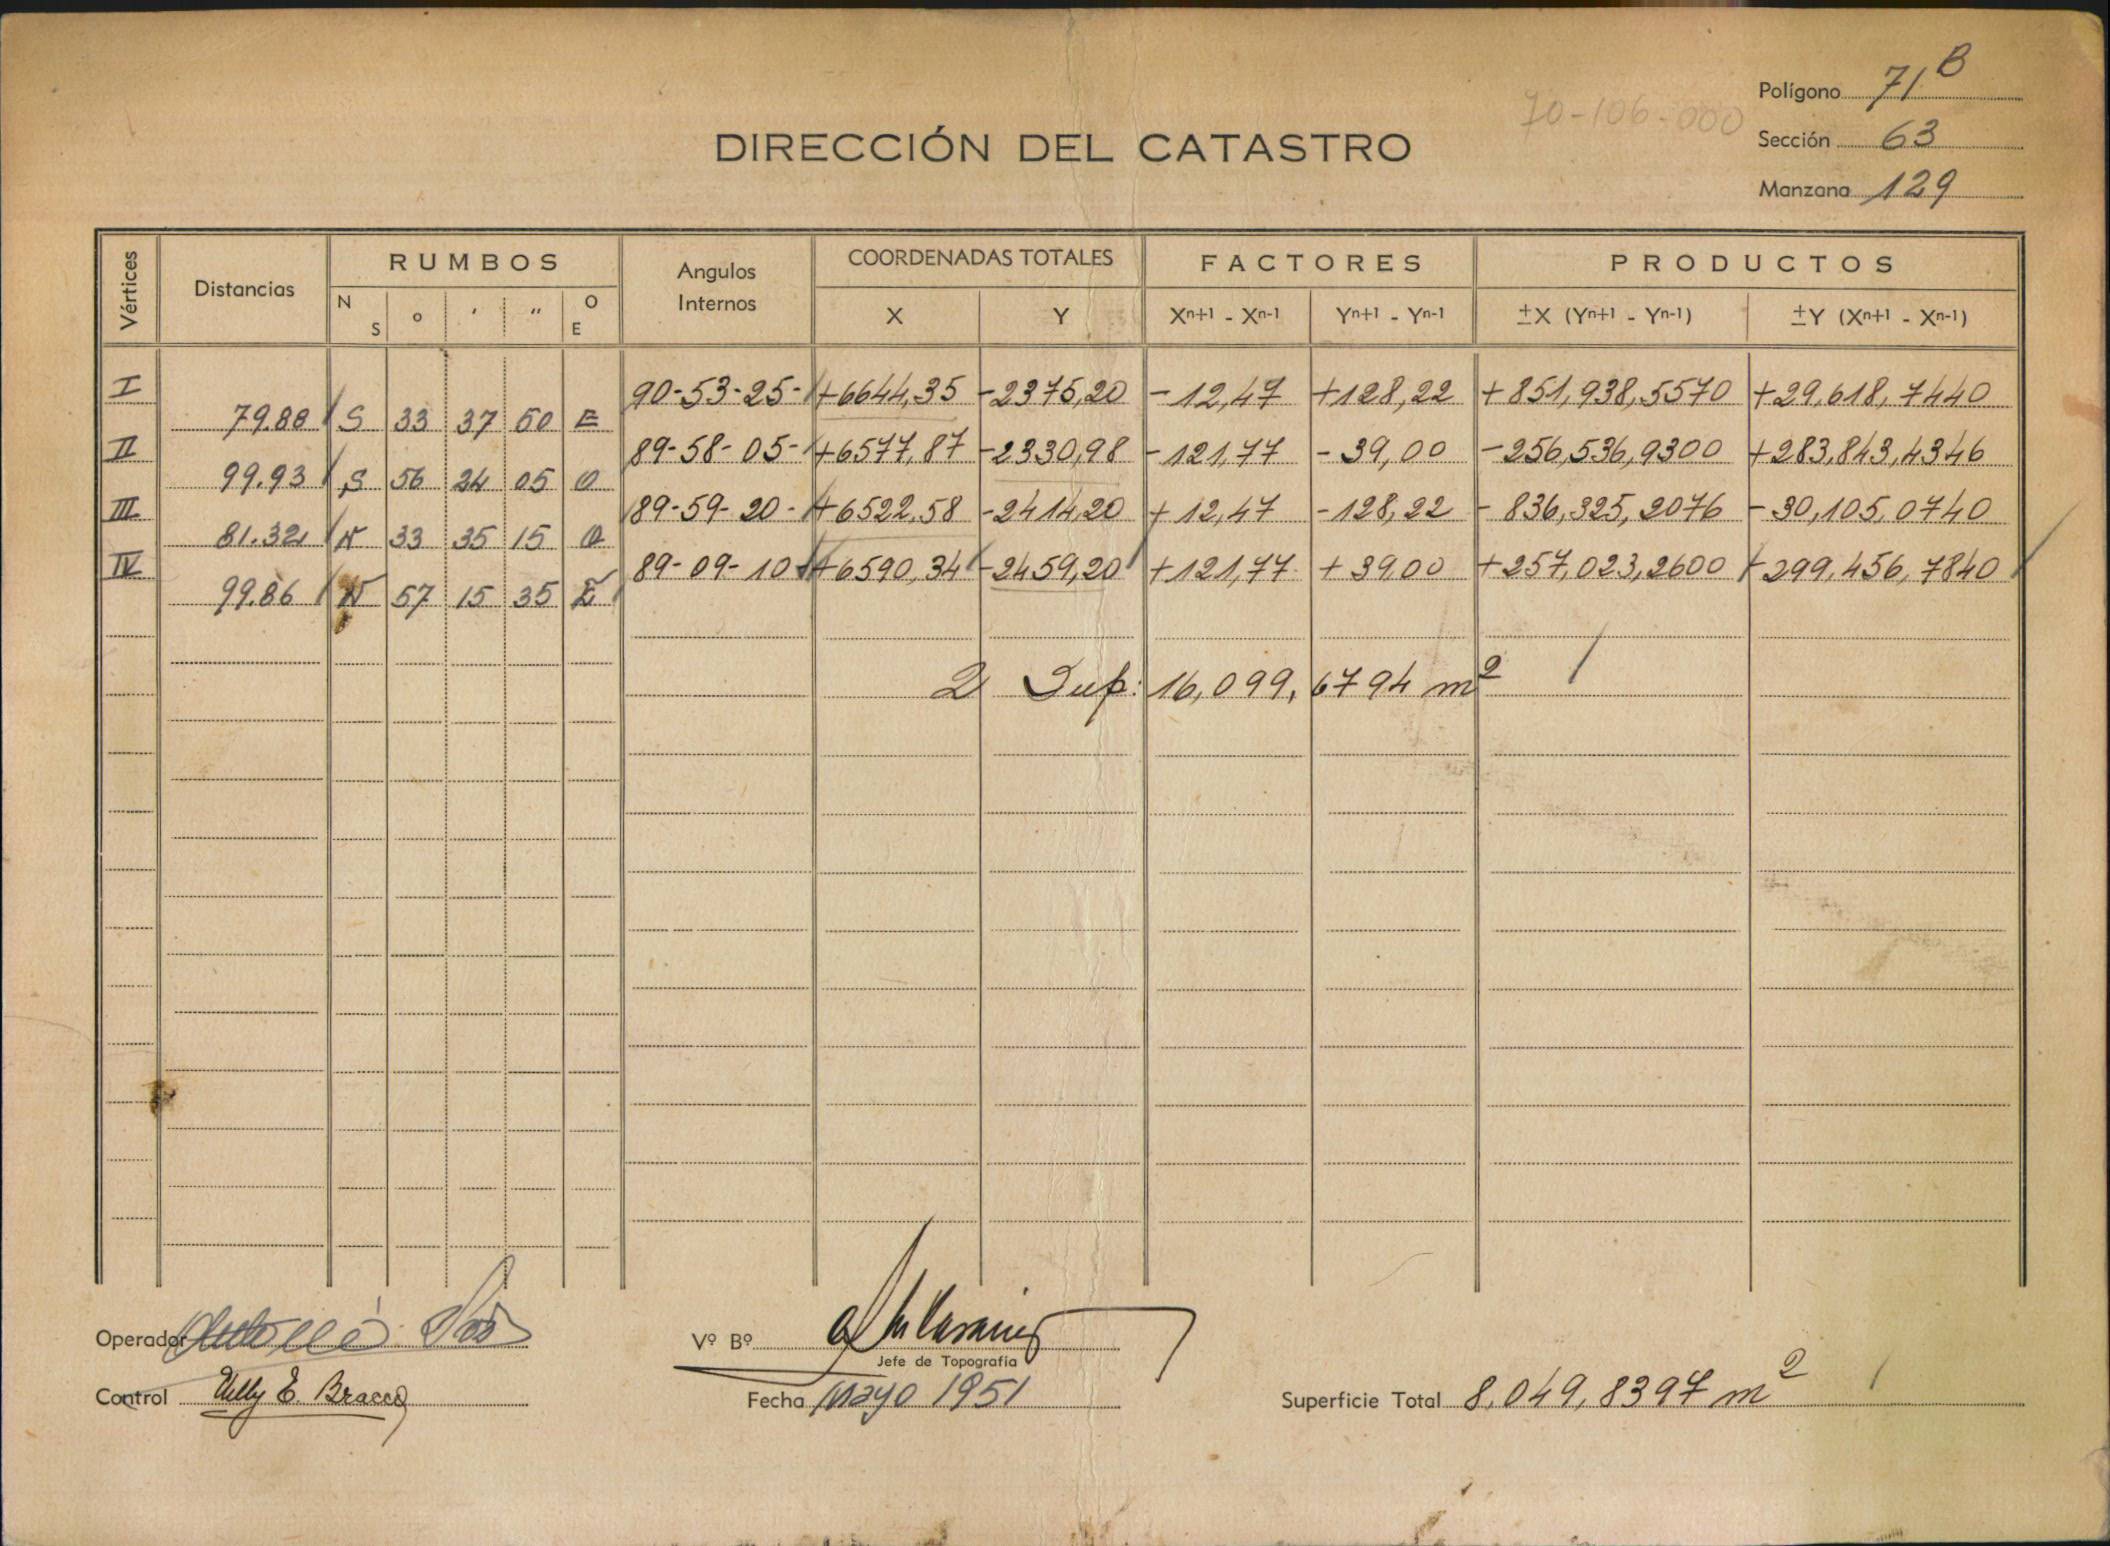 Polígono 71 B
70-106-000
DIRECCIÓN DEL CATASTRO
Sección 63
Manzana 129
Vértices Distancias RUMBOS Angulos Internos COORDENADAS TOTALES FACTORES PRODUCTOS
N S o ′ ″ O E X Y Xn+1 - Xn-1 Yn+1 - Yn-1 ±X (Yn+1 - Yn-1) ±Y (Xn+1 - Xn-1)
I 90-53-25- +6644,35 -2375,20 -12,47 +128,22 +851,938,5570 +29,618,7440
79.88 S 33 37 50 E
II 89-58-05- +6577,87 -2330,98 -121,77 -39,00 -256,536,9300 +283,843,4346
99.93 S 56 24 05 O
III 89-59-20- +6522,58 -2414,20 +12,47 -128,22 -836,325,2076 -30,105,0740
81.32 N 33 35 15 O
IV 89-09-10 +6590,34 -2459,20 +121,77 +39,00 +257,023,2600 -299,456,7840
99.86 N 57 15 35 E
2 Sup: 16,099,6794 m2
Operador
Vº Bº
Jefe de Topografía
Control Nelly E. Bracco
Fecha Mayo 1951
Superficie Total 8,049,8397 m2